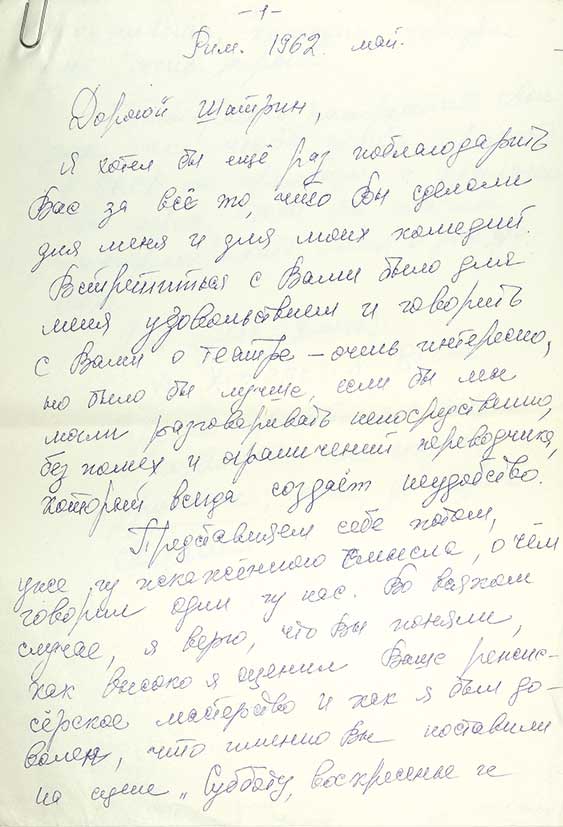 -1-
Рим. 1962. май.
Дорогой Шатрин,
я хотел бы ещё раз поблагодарить
Вас за всё то, что Вы сделали
для меня и для моих комедий.
Встретиться с Вами было для
меня удовольствием и говорить
с Вами о театре – очень интересно,
но было бы лучше, если бы мы
могли разговаривать непосредственно,
без помех и ограничений переводчика,
который всегда создаёт неудобство.
Представляем себе потом,
уже из искажённого смысла, о чём
говорил один из нас. Во всяком
случае, я верю, что Вы поняли,
как высоко я оценил Ваше режис-
сёрское мастерство и как я был до-
волен, что именно Вы поставили
на сцене „Субботу, воскресенье и